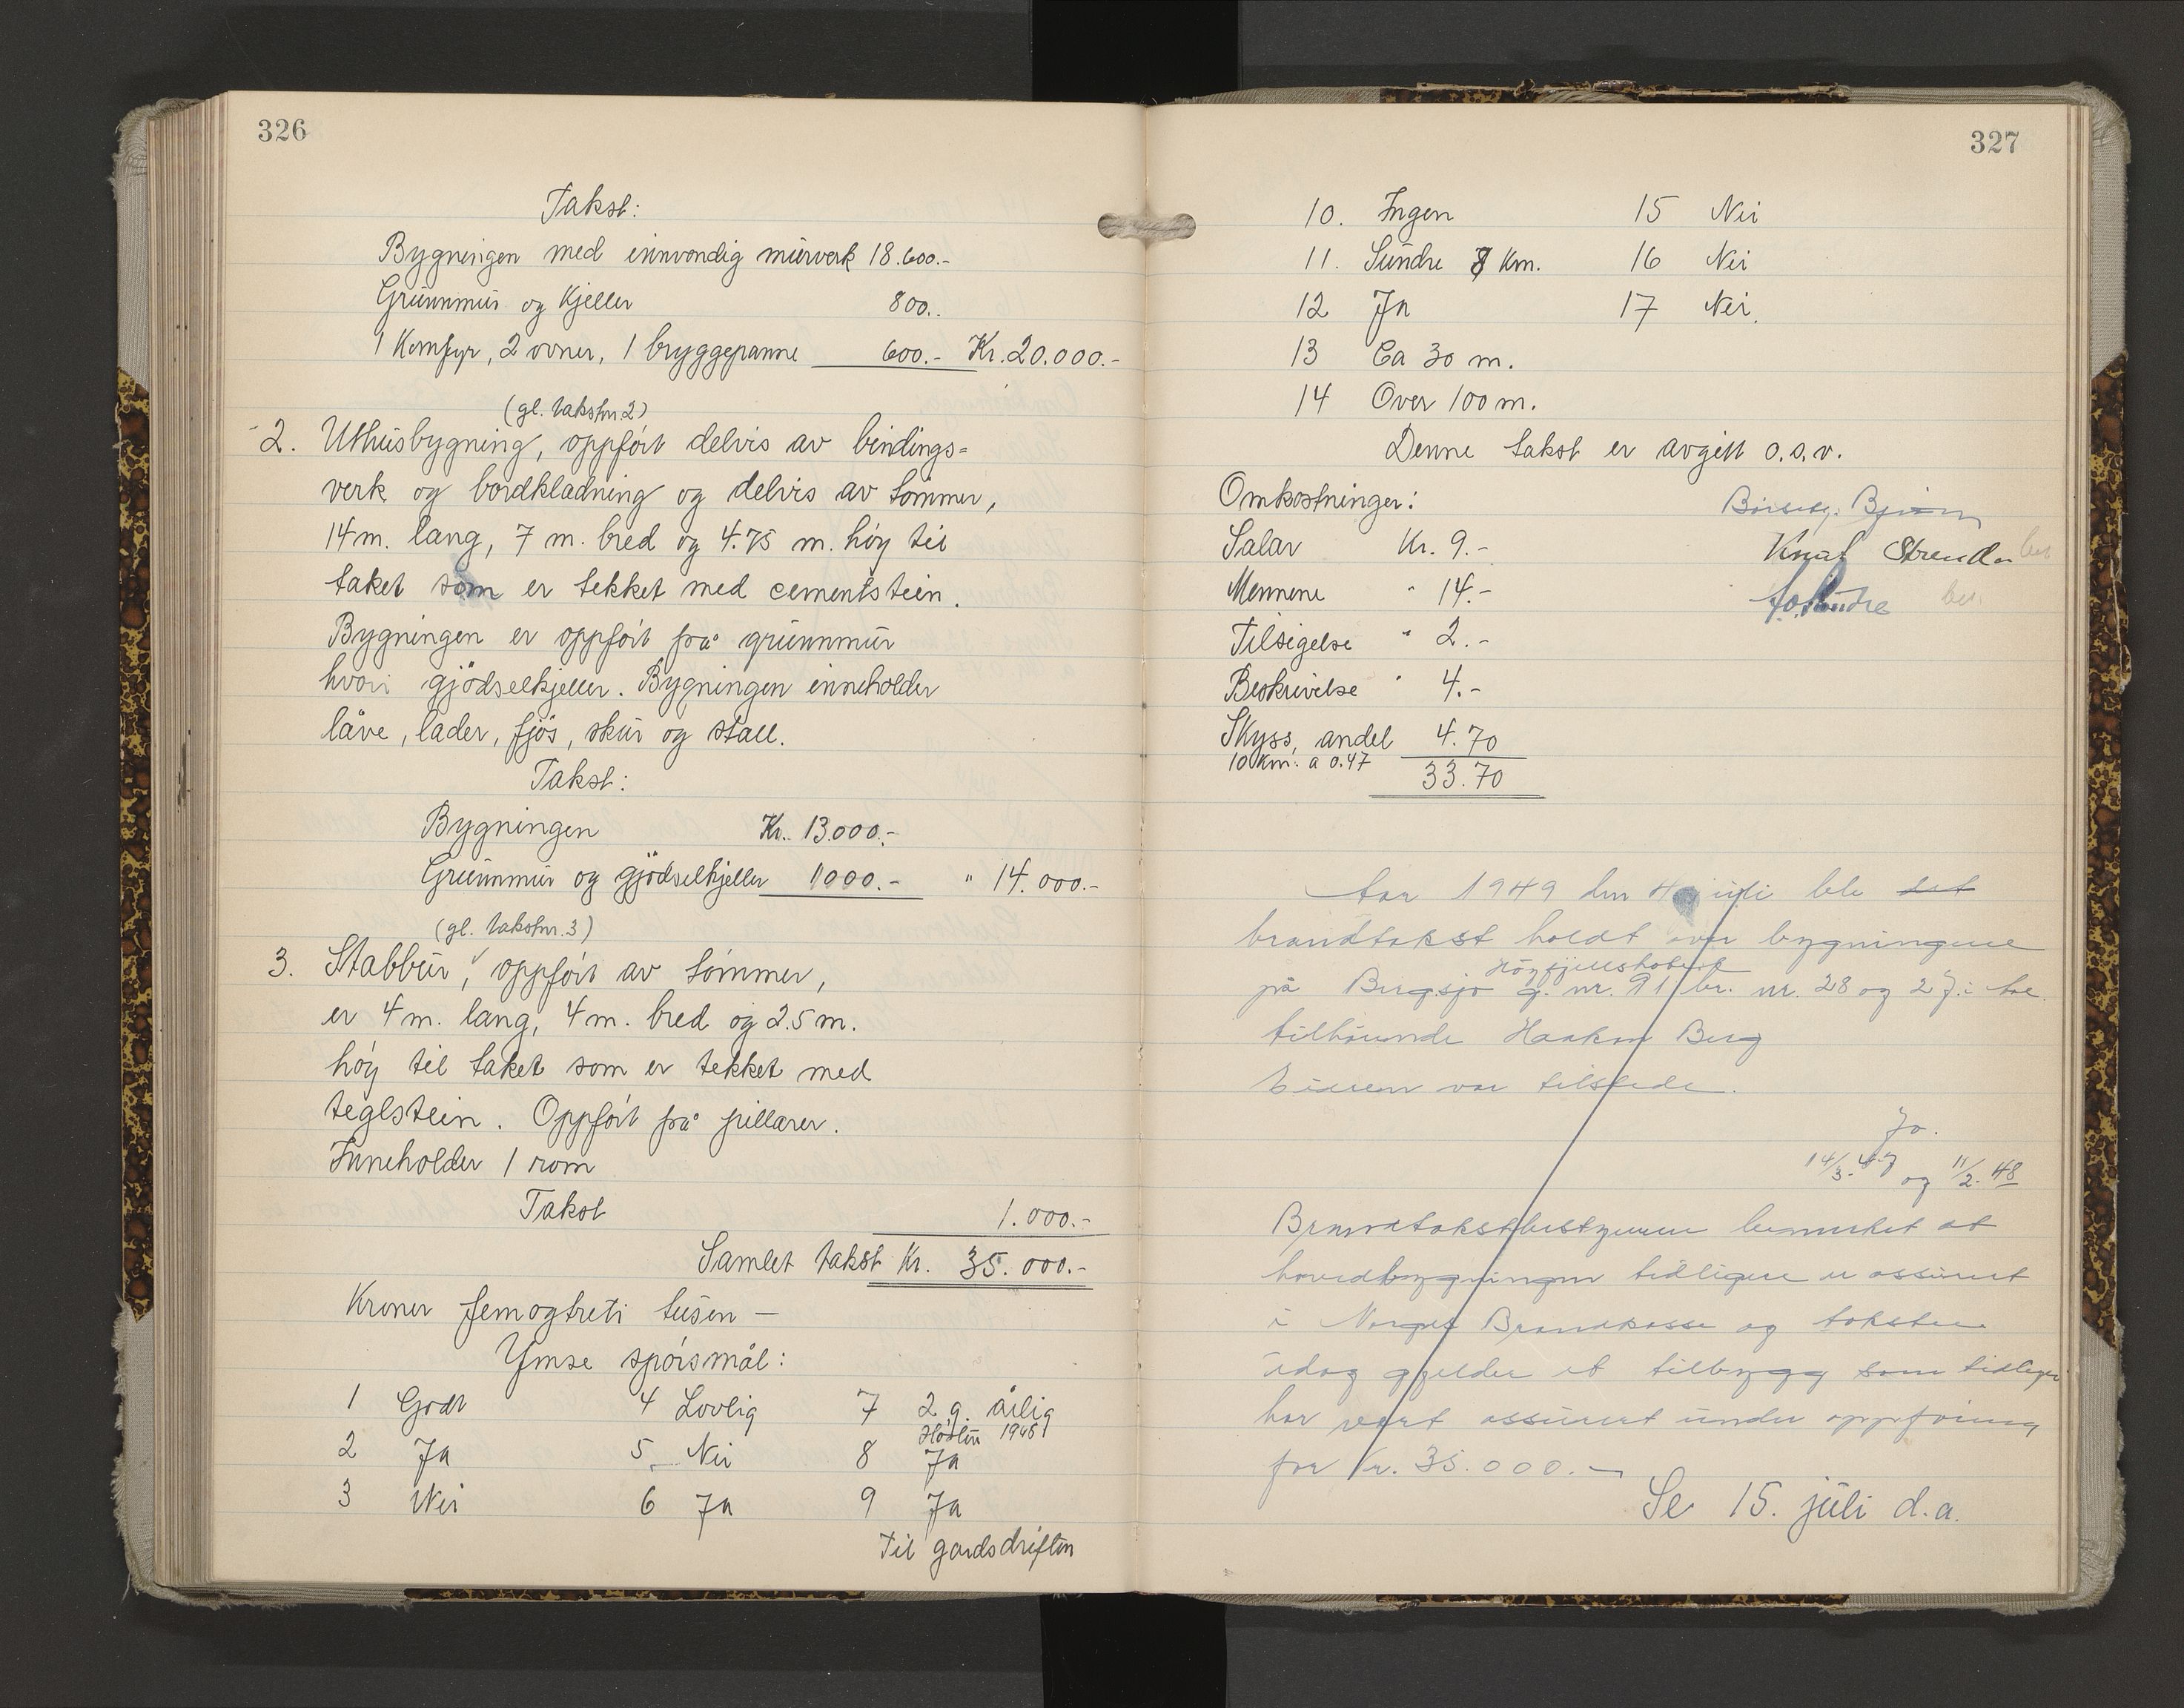 326
Takst:
Bygningen med innvendig murverk 18.600.-
Grunnmur og Kjeller 800.-
1 Komfyr, 2 ovner, 1 bryggepanne 600.- Kr. 20.000.-
(gl. takstnr. 2)
2. Uthusbygning, oppført delvis av bindings=
verk og bordkledning og delvis av tømmer,
14 m. lang, 7 m. bred og 4.75 m. høy til
taket som er tekket med cementstein.
Bygningen er oppført på grunnmur
hvori gjødselkjeller. Bygningen inneholder
låve, lader, fjøs, skur og stall.
Takst:
Bygningen Kr. 13.000.-
Grunnmur og gjødselkjeller 1000.- " 14.000.-
(gl. takstnr. 3)
3. Stabbur, oppført av tømmer,
er 4 m. lang, 4 m. bred og 2.5 m.
høy til taket som er tekket med
teglstein. Oppført på pillarer.
Inneholder 1 rom
Takst 1.000.-
Samlet takst Kr. 35.000.-
Kroner femogtreti tusen —
Ymse spørsmål:
1 Godt 4 Lovlig 7 2 g. årlig
Høsten 1948
2 Ja 5 Nei 8 Ja
3 Nei 6 Ja 9 Ja
Til gardsdriften
327
10. Ingen 15 Nei
11. Sundre 7 Km. 16 Nei
12 Ja 17 Nei.
13 Ca 30 m.
14 Over 100 m.
Denne takst er avgitt o.s.v.
Omkostninger:
Salær Kr. 9.-
Knut
Mennene " 14.-
Tilsigelse " 2.-
Beskrivelse " 4.-
Skyss, andel 4.70
10 Km. a 0.47
33.70
Aar 1949 den 4 juli ble tat
brandtakst holdt over bygningene
Høyfjellshotell
på Bergsjø g. nr. 91 br. nr. 28 og 27 i
tilhørende Haakon Berg
Eieren var tilstede.
Jo.
14/3-47 og 11/2-48
Branntakstbestyreren bemerket at
hovedbygningen tidligere er assurert
i Norges Brannkasse og taksten
idag gjelder et tilbygg som tidligere
har vært assurert under oppføring
for Kr. 35.000.—
Se 15. juli d.a.